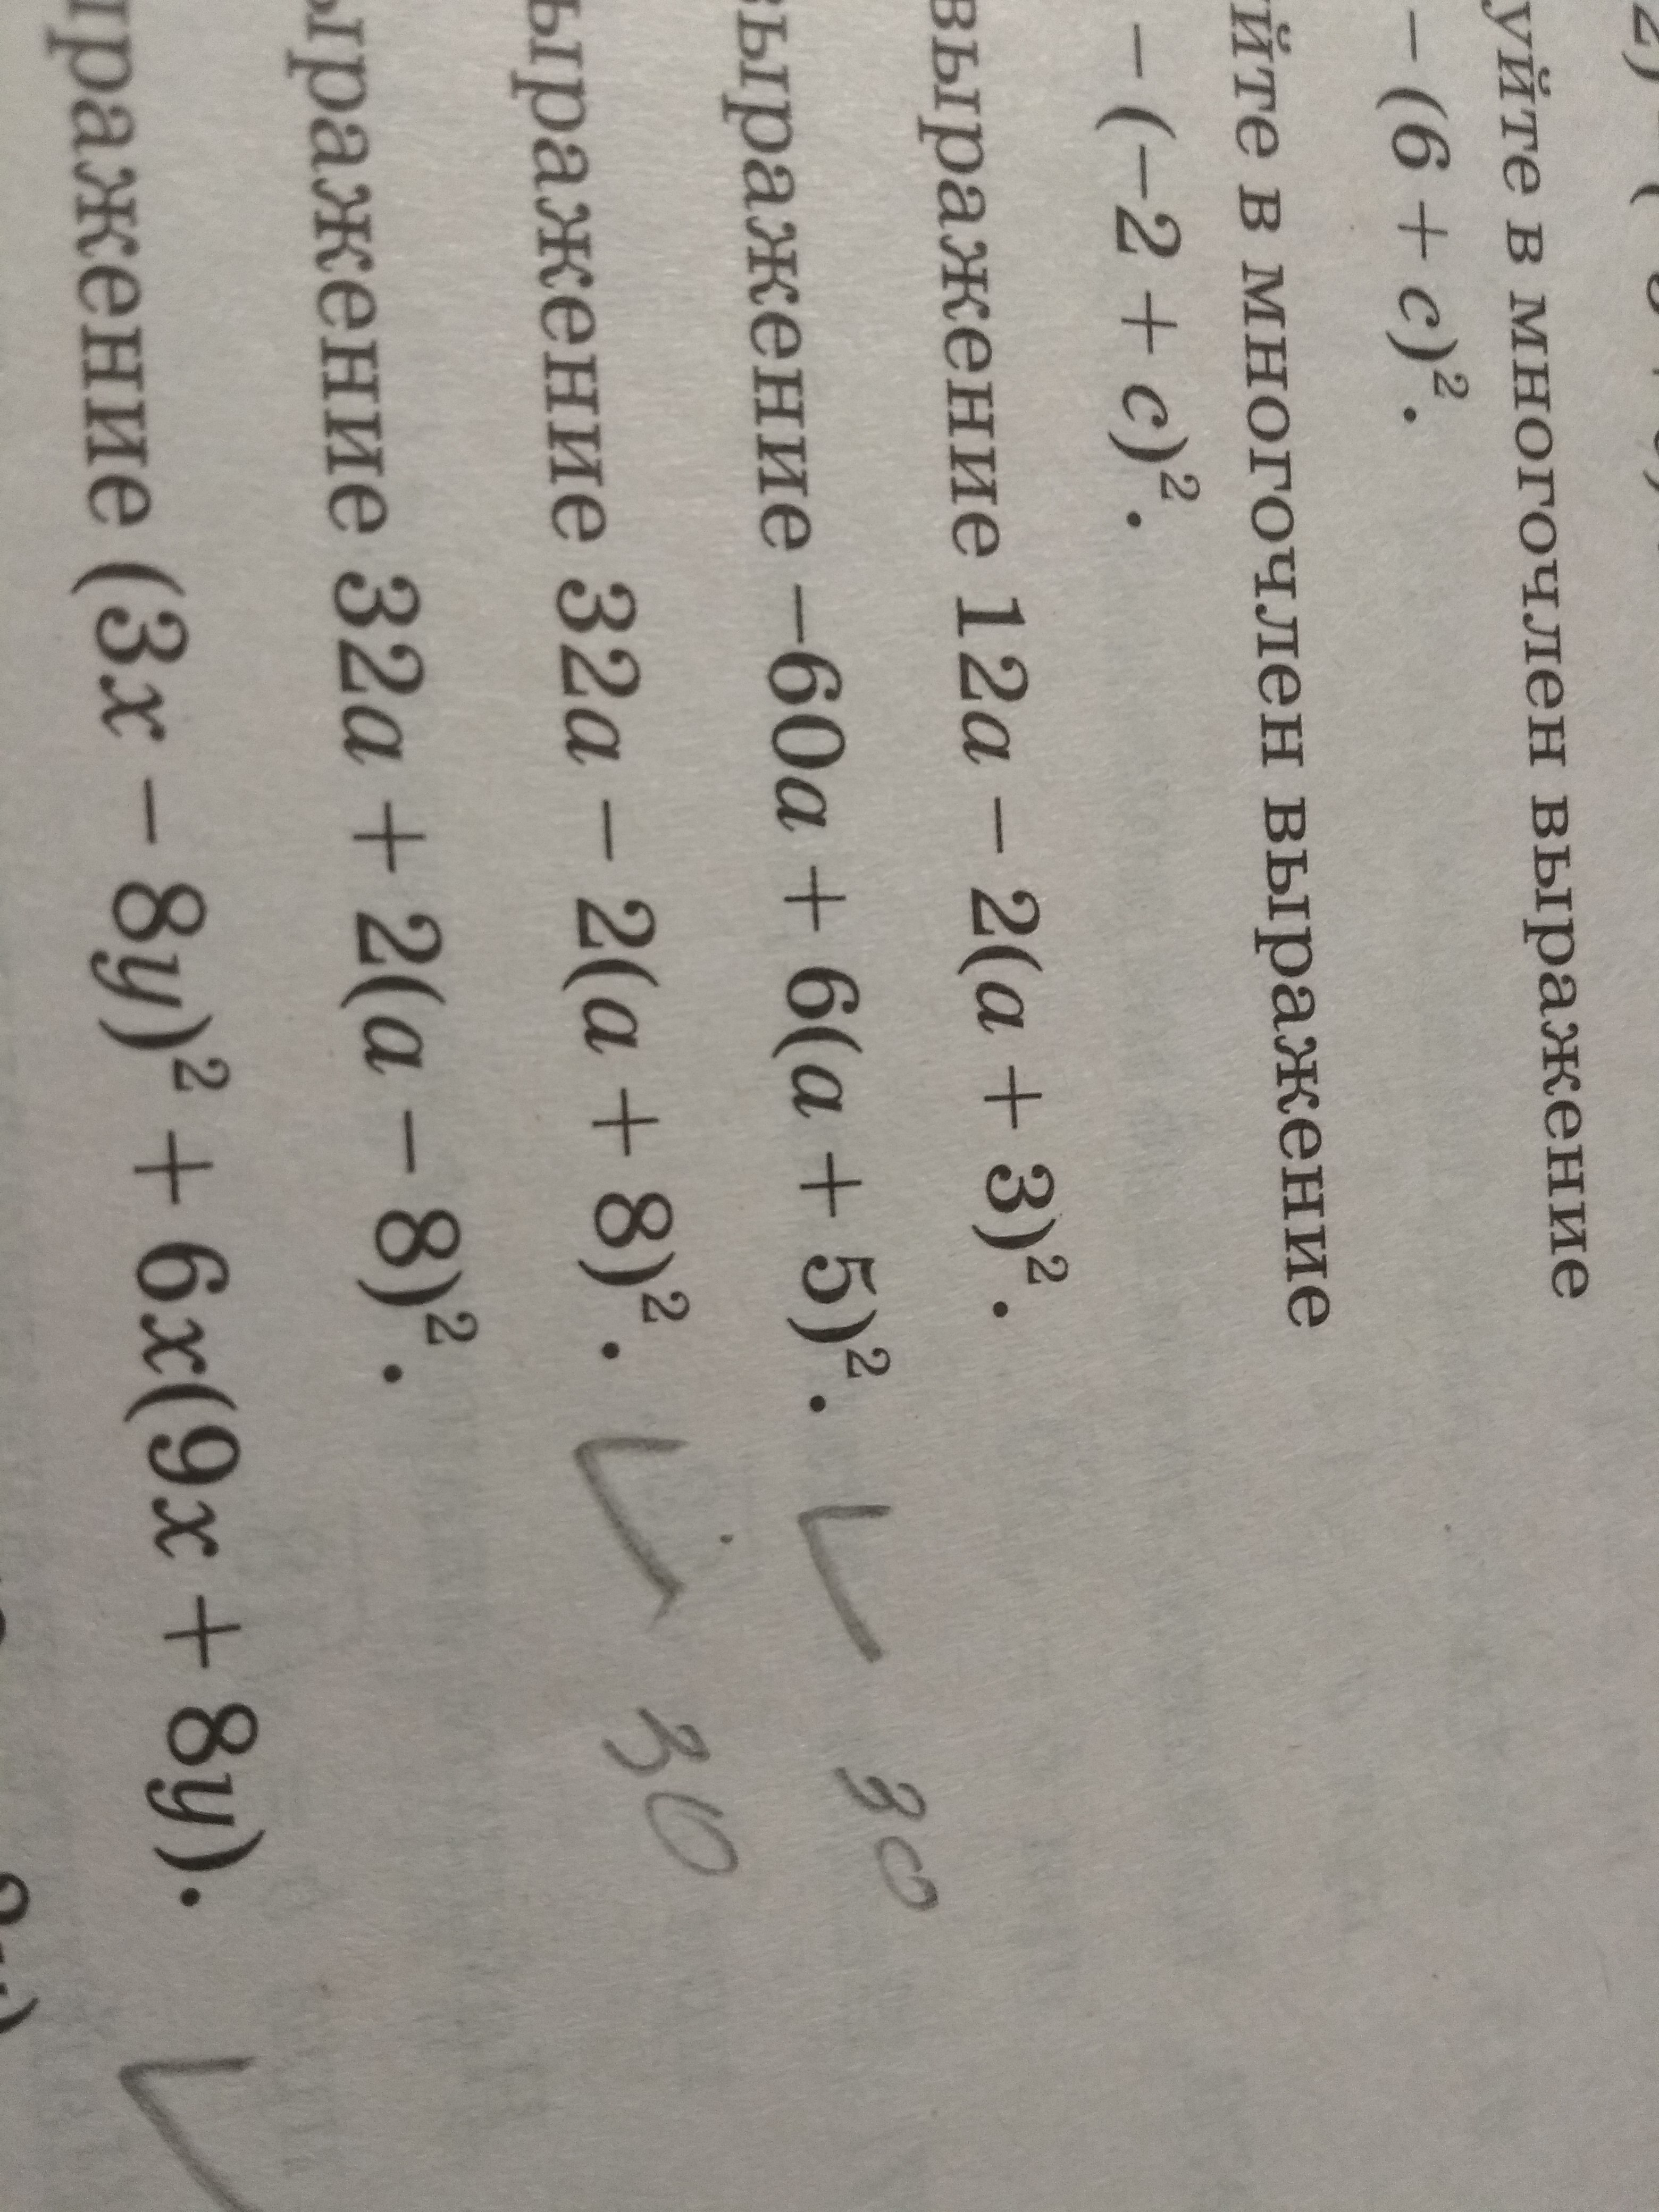 уйте в многочлен выражение
− (6 + c)².
йте в многочлен выражение
− (−2 + c)².
выражение 12a − 2(a + 3)².
выражение −60a + 6(a + 5)². 30
ыражение 32a − 2(a + 8)². 30
ыражение 32a + 2(a − 8)².
ражение (3x − 8y)² + 6x(9x + 8y).